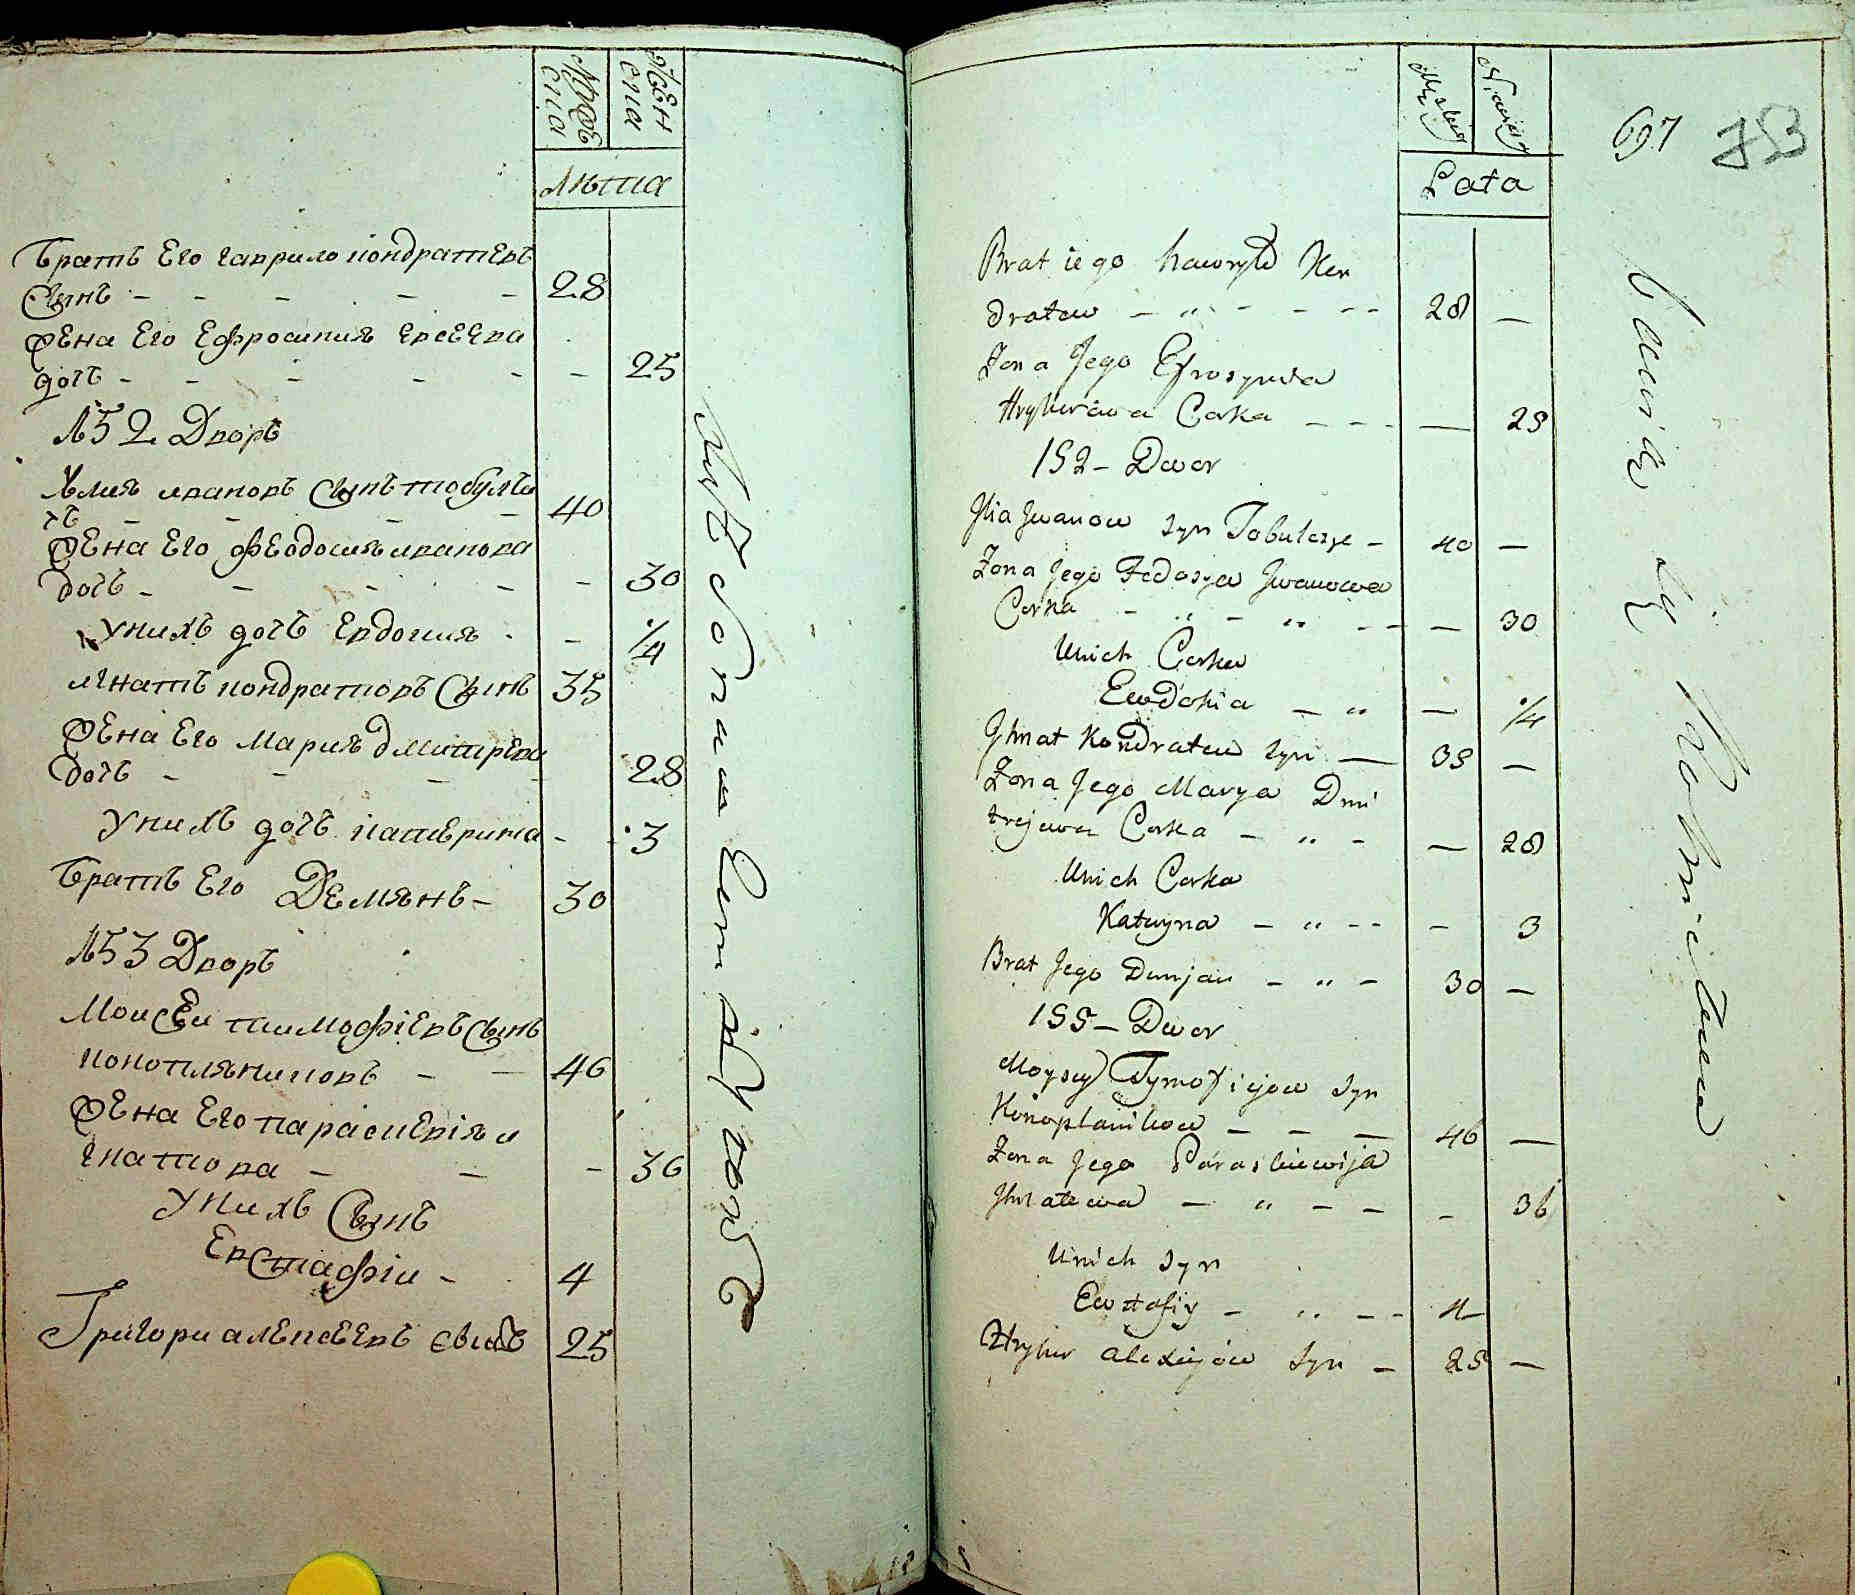 Мужеска
Женска
Лѣта
Братъ Его гаврило кондратевъ
Сынъ - - - - - 28
жена Его Ефросиния
дочь - - - - - - 25
152 Дворъ
Илия ивановъ Сынъ тобулче
40
жена Его феодосия иванова
дочь - - - - - 30
унихъ дочь Евдокия - - 1/4
игнатъ кондратовъ Сынъ 35
жена Его Мария дмитрева
дочь - - - 28
унихъ дочь катерина - - 3
Братъ Его Демянъ - 30
153 Дворъ
Моисеи тимофіевъ Сынъ
конопляниковъ - - 46
жена Его параскевія и
гнатова - - - 36
унихъ Сынъ
Евстафіи - 4
Григори алексеевъ Сынъ 25
697 73
Lata
Brat iego hawryło Kon
dratew - „ - - - - 28 -
Zona Jego Efrosynia
Hryhorowa Corka - - - - 25
152 - Dwor
Jlia Jwanow syn Tobulcze - 40 -
Zona Jego Fedosya Jwanowa
Corka - „ - „ - - - 30
Unich Corka
Ewdokia - „ - 1/4
Jhnat Kondratew syn - 35 -
Zona Jego Marya Dmi
trejewa Corka - „ - - 28
Unich Corka
Katryna - „ - - - 3
Brat Jego Demjan - „ - 30 -
153 - Dwor
Moysey Tymofiejow syn
Konoplanikow - - - 46 -
Zona Jego Paraskiewija
Jhnatowa - „ - - - 36
Unich syn
Ewstafiy - „ - - 4
Hryhor alexiejow syn - 25 -